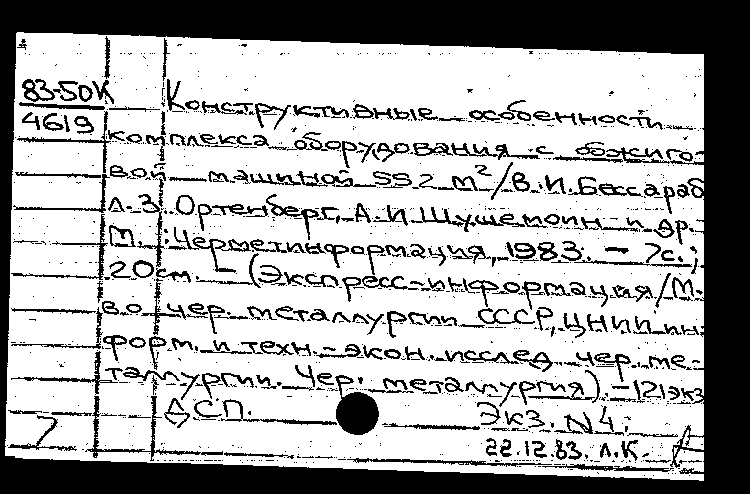 83-50К
4619
Конструктивные особенности
комплекса оборудования с обжиго-
вой машиной 552 м²/В.И.Бессараб
Л.З. Ортенберг, А.И.Шушемоин и др.
М.: Черметинформация, 1983. - 7с.;
20см. - (Экспресс-информация/М-
во чер. металлургии СССР, ЦНИИ ин-
форм. и техн.-экон. исслед. чер. ме-
таллургии. Чер. металлургия). - 121экз
СП.
Экз. N4:
7
22.12.83. Л.К.